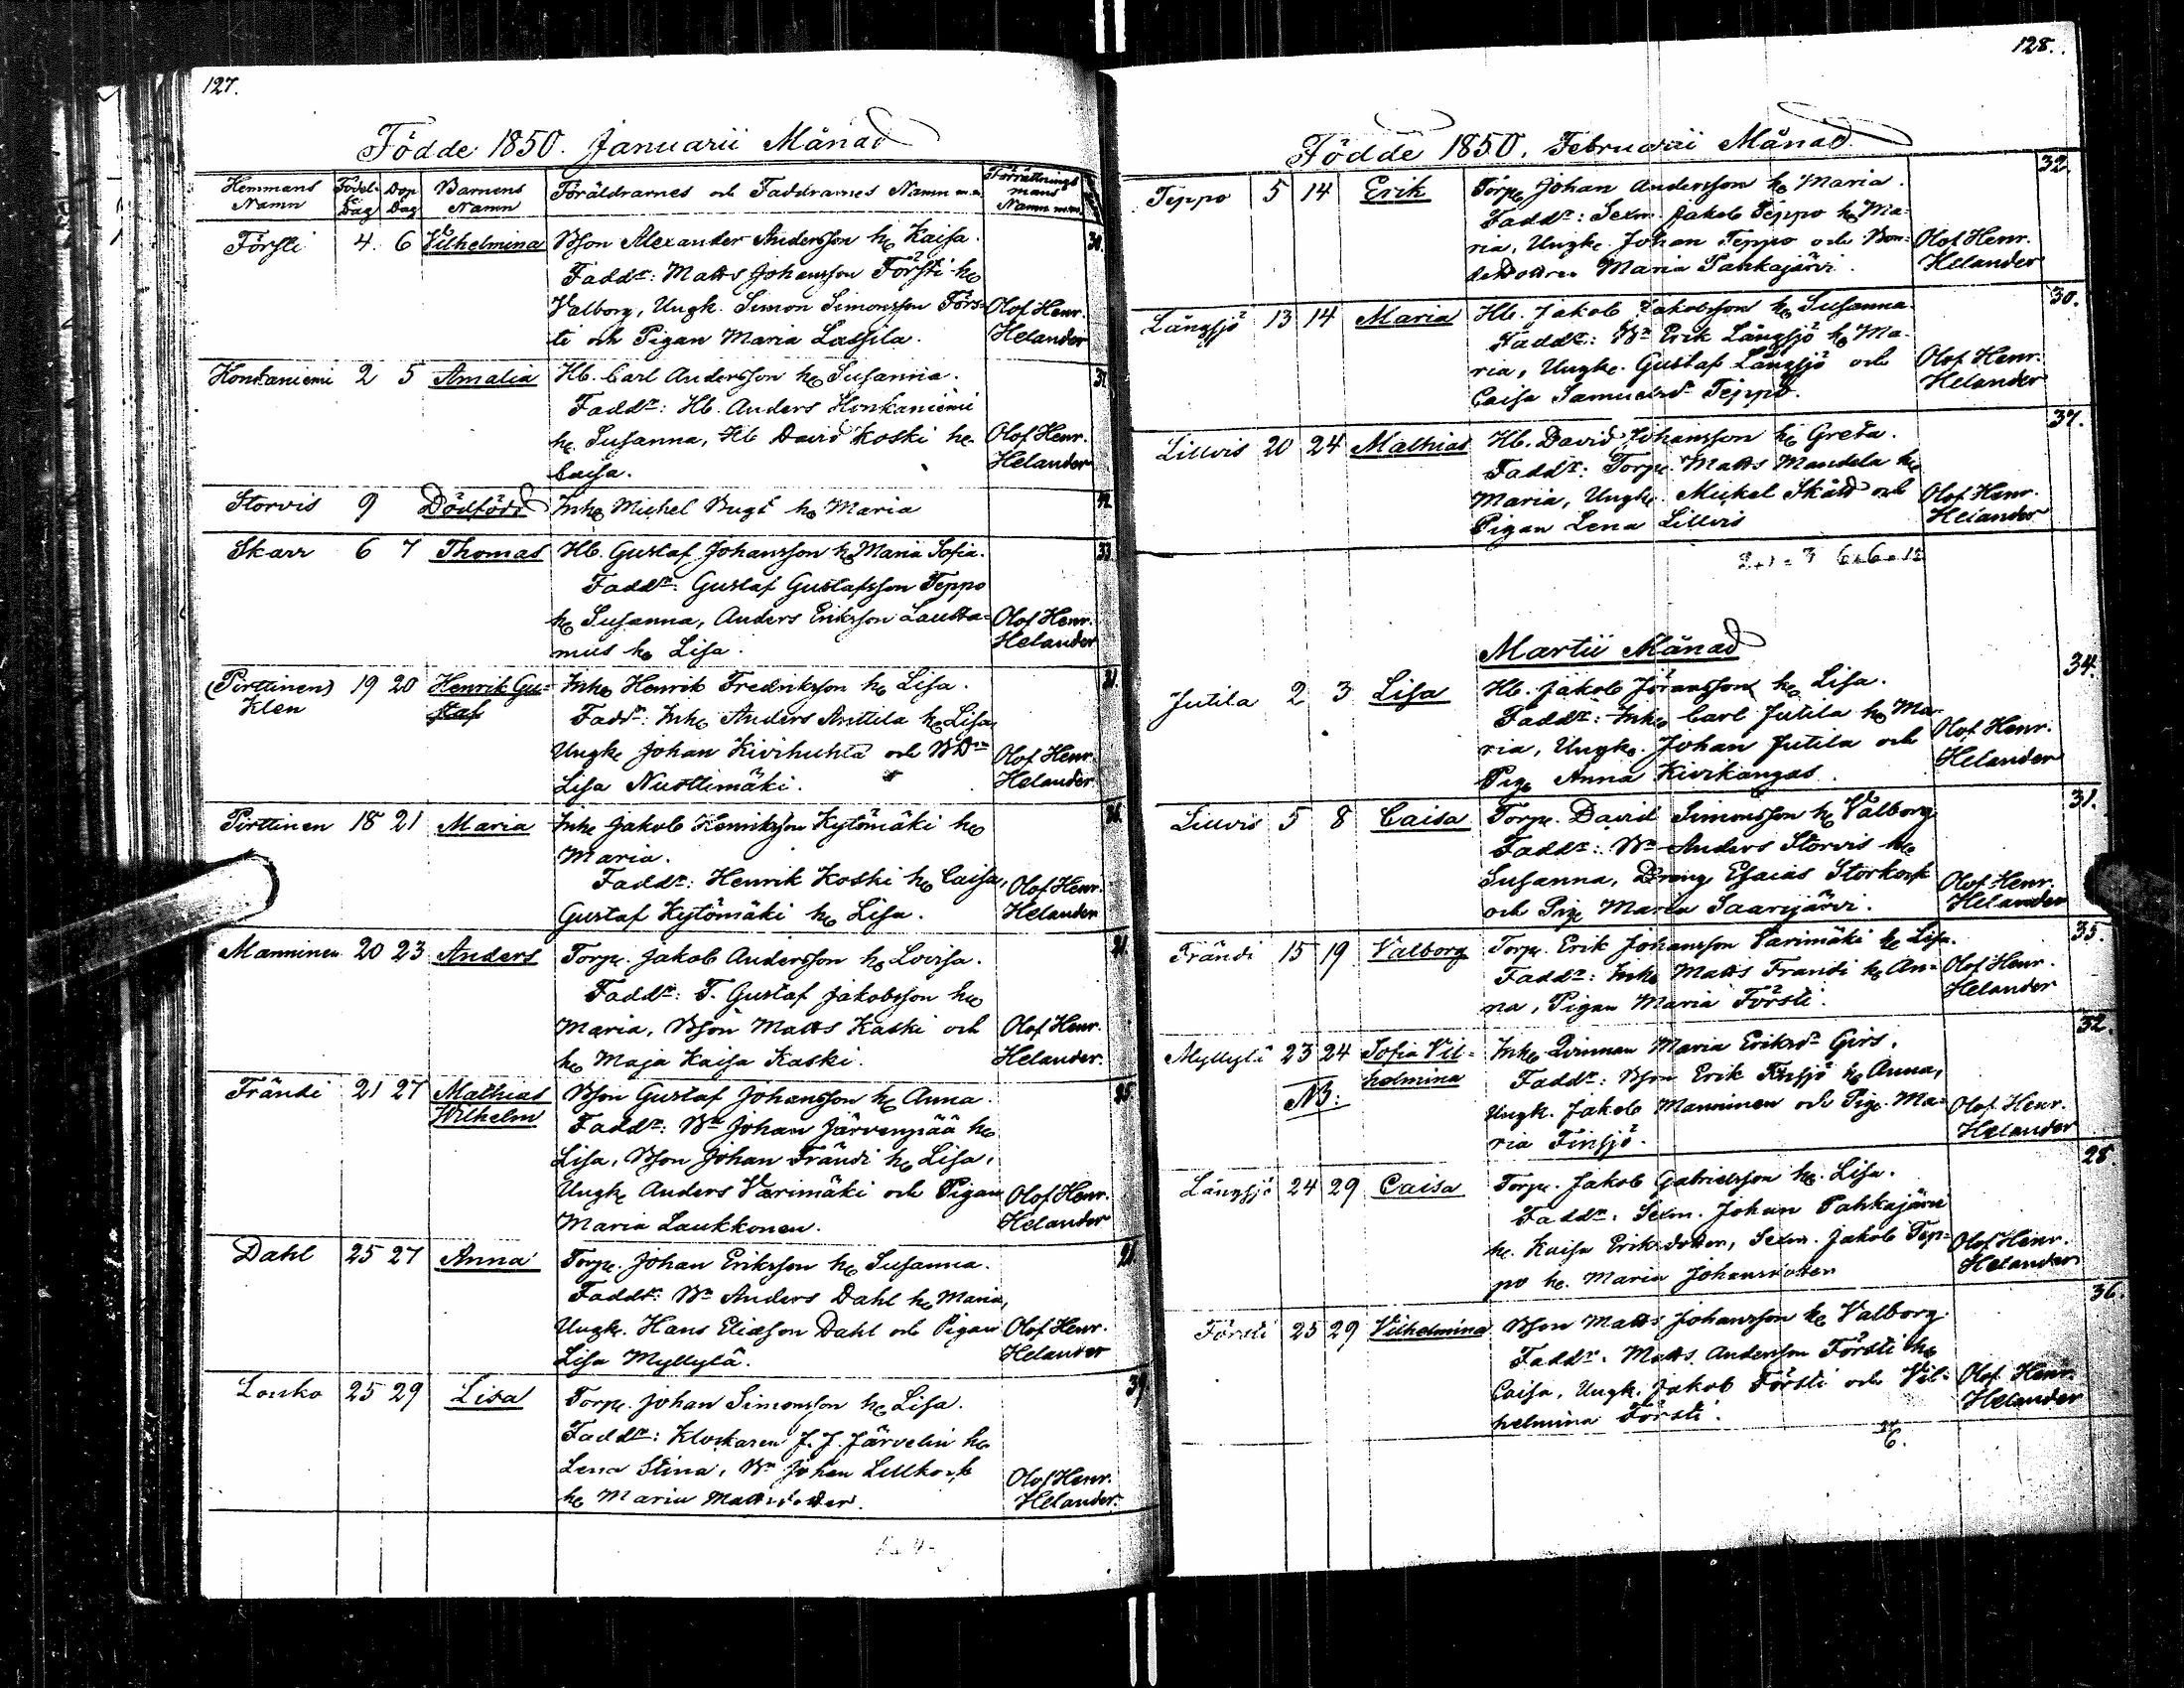 127.
Födde 1850. Januarii Månad
Hemmans Namn Födel. Dag Dop Dag Barnens Namn Föräldrarnes och Faddrarnes Namn m.m. Förrättnings mans Namn m.m.
Försti 4. 6 Vilhelmina Bson Alexander Andersson h. Kaisa. 30.
Fadd.r: Matts Johansson Försti h.
Valborg, Ungk. Simon Simonsson Förs= Olof Henr.
ti och Pigan Maria Lassila. Helander
Honkaniemi 2 5 Amalia Hb. Carl Andersson h. Susanna.
Fadd.r: Hb. Anders Honkaniemi
h. Susanna, Hb David Koski h. Olof Henr.
Caisa. Helander
Storvis 9 Dödfödd Inh. Michel Bugt h. Maria
Skarr 6 7 Thomas Hb. Gustaf Johansson h. Maria Sofia. 33.
Fadd.r: Gustaf Gustafsson Teppo
h. Susanna, Anders Eriksson Lautta= Olof Henr.
mus h. Lisa. Helander
(Pirttinen) Klen 19 20 Henrik Gu= Inh. Henrik Fredriksson h. Lisa.
staf Fadd.r: Inh. Anders Anttila h. Lisa,
Ungk. Johan Kivihuhta och BD.r Olof Henr.
Lisa Niusttimäki. Helander.
Pirttinen 18 21 Maria Inh. Jakob Henriksson Kytömäki h.
Maria.
Fadd.r: Henrik Koski h. Caisa, Olof Henr.
Gustaf Kytömäki h. Lisa. Helander
Manninen 20 23 Anders Torp. Jakob Andersson h. Lovisa.
Fadd.r: T. Gustaf Jakobsson h.
Maria, Bson Matts Kaski och Olof Henr.
h. Maja Kaisa Kaski. Helander.
Frändi 21 27 Mathias Bson Gustaf Johansson h. Anna.
Wilhelm Fadd.r: B.n Johan Järvenpää h.
Lisa, Bson Johan Frändi h. Lisa,
Ungk. Anders Varimäki och Pigan Olof Henr.
Maria Laukkonen. Helander
Dahl 25 27 Anna Torp. Johan Eriksson h. Susanna.
Fadd.r: B.n Anders Dahl h. Maria,
Ungk. Hans Eliasson Dahl och Pigan Olof Henr.
Lisa Myllylä. Helander
Louko 25 29 Lisa Torp. Johan Simonsson h. Lisa. 39
Fadd.r: Klockaren J. J. Järvelin h.
Lena Stina, B.n Johan Lillkock Olof Henr.
h. Maria Mattsdotter. Helander.
128.
Födde 1850. Februarii Månad.
Teppo 5 14 Erik Torp. Johan Andersson h. Maria. 32.
Fadd.r: Sexm. Jakob Teppo h. Ma=
ria, Ungk. Johan Teppo och Bon= Olof Henr.
dedottren Maria Pahkajärvi. Helander
Långsjö 13 14 Maria Hb. Jakob Jakobsson h. Susanna. 30.
Fadd.r: B.n Erik Långsjö h. Ma=
ria, Ungk. Gustaf Långsjö och Olof Henr.
Caisa Samuelsd.r Teppo. Helander
Lillvis 20 24 Mathias Hb. David Johansson h. Greta. 37.
Fadd.r: Torp. Matts Mandela h.
Maria, Ungk. Mickel Skått och Olof Henr.
Pigan Lena Lillvis Helander
2+1=3 6+6=12
Martii Månad
Jutila 2 3 Lisa Hb. Jakob Jöransson h. Lisa. 34.
Fadd.r: Inh. Carl Jutila h. Ma=
ria, Ungk. Johan Jutila och Olof Henr.
Pig. Anna Kivikangas. Helander
Lillvis 5 8 Caisa Torp. David Simonsson h. Valborg 31.
Fadd.r: B.n Anders Storvis h.
Susanna, Dreng Esaias Storkock Olof Henr.
och Pig. Maria Saarijärvi. Helander
Frändi 15 19 Valborg Torp. Erik Johansson Varimäki h. Lisa. 35.
Fadd.r: Inh. Matts Frändi h. An= Olof Henr.
na, Pigan Maria Försti. Helander
Myllylä 23 24 Sofia Vil= Inh. Qvinnan Maria Eriksd.r Girs. 32.
helmina Fadd.r: Bson Erik Finsjö h. Anna,
NB: Ungk. Jakob Manninen och Pig. Ma= Olof Henr.
ria Finsjö. Helander
Långsjö 24 29 Caisa Torp. Jakob Gabrielsson h. Lisa. 28.
Fadd.r: Sexm. Johan Pahkajärvi
h. Kaisa Eriksdotter, Sexm. Jakob Tep= Olof Henr.
po h. Maria Johansdotter Helander
Försti 25 29 Vilhelmina Bson Matts Johansson h. Valborg. 36.
Fadd.r: Matts Andersson Försti h.
Caisa, Ungk. Jakob Försti och Vil= Olof Henr.
helmina Försti. Helander